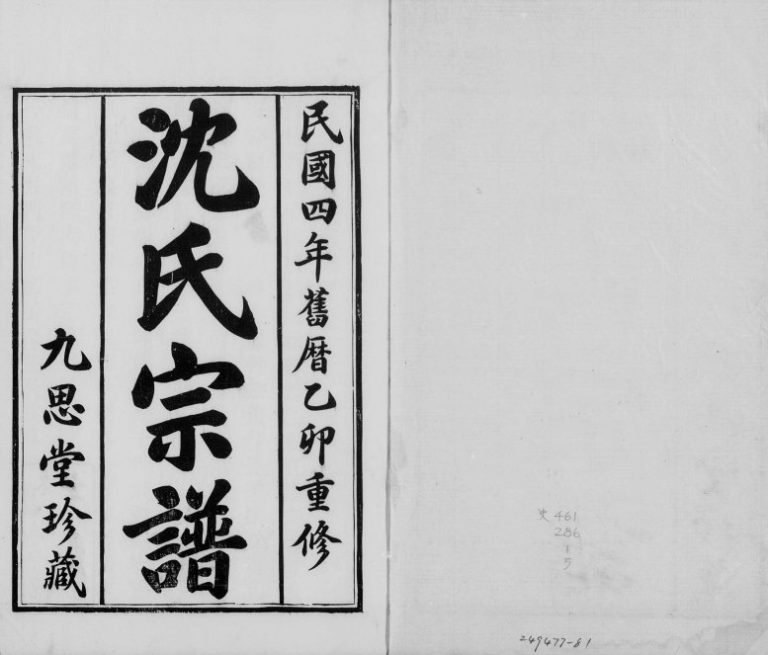 民國四年舊曆乙卯重修
沈氏宗譜
九思堂珍藏
史 461
286
1
5
249477-81